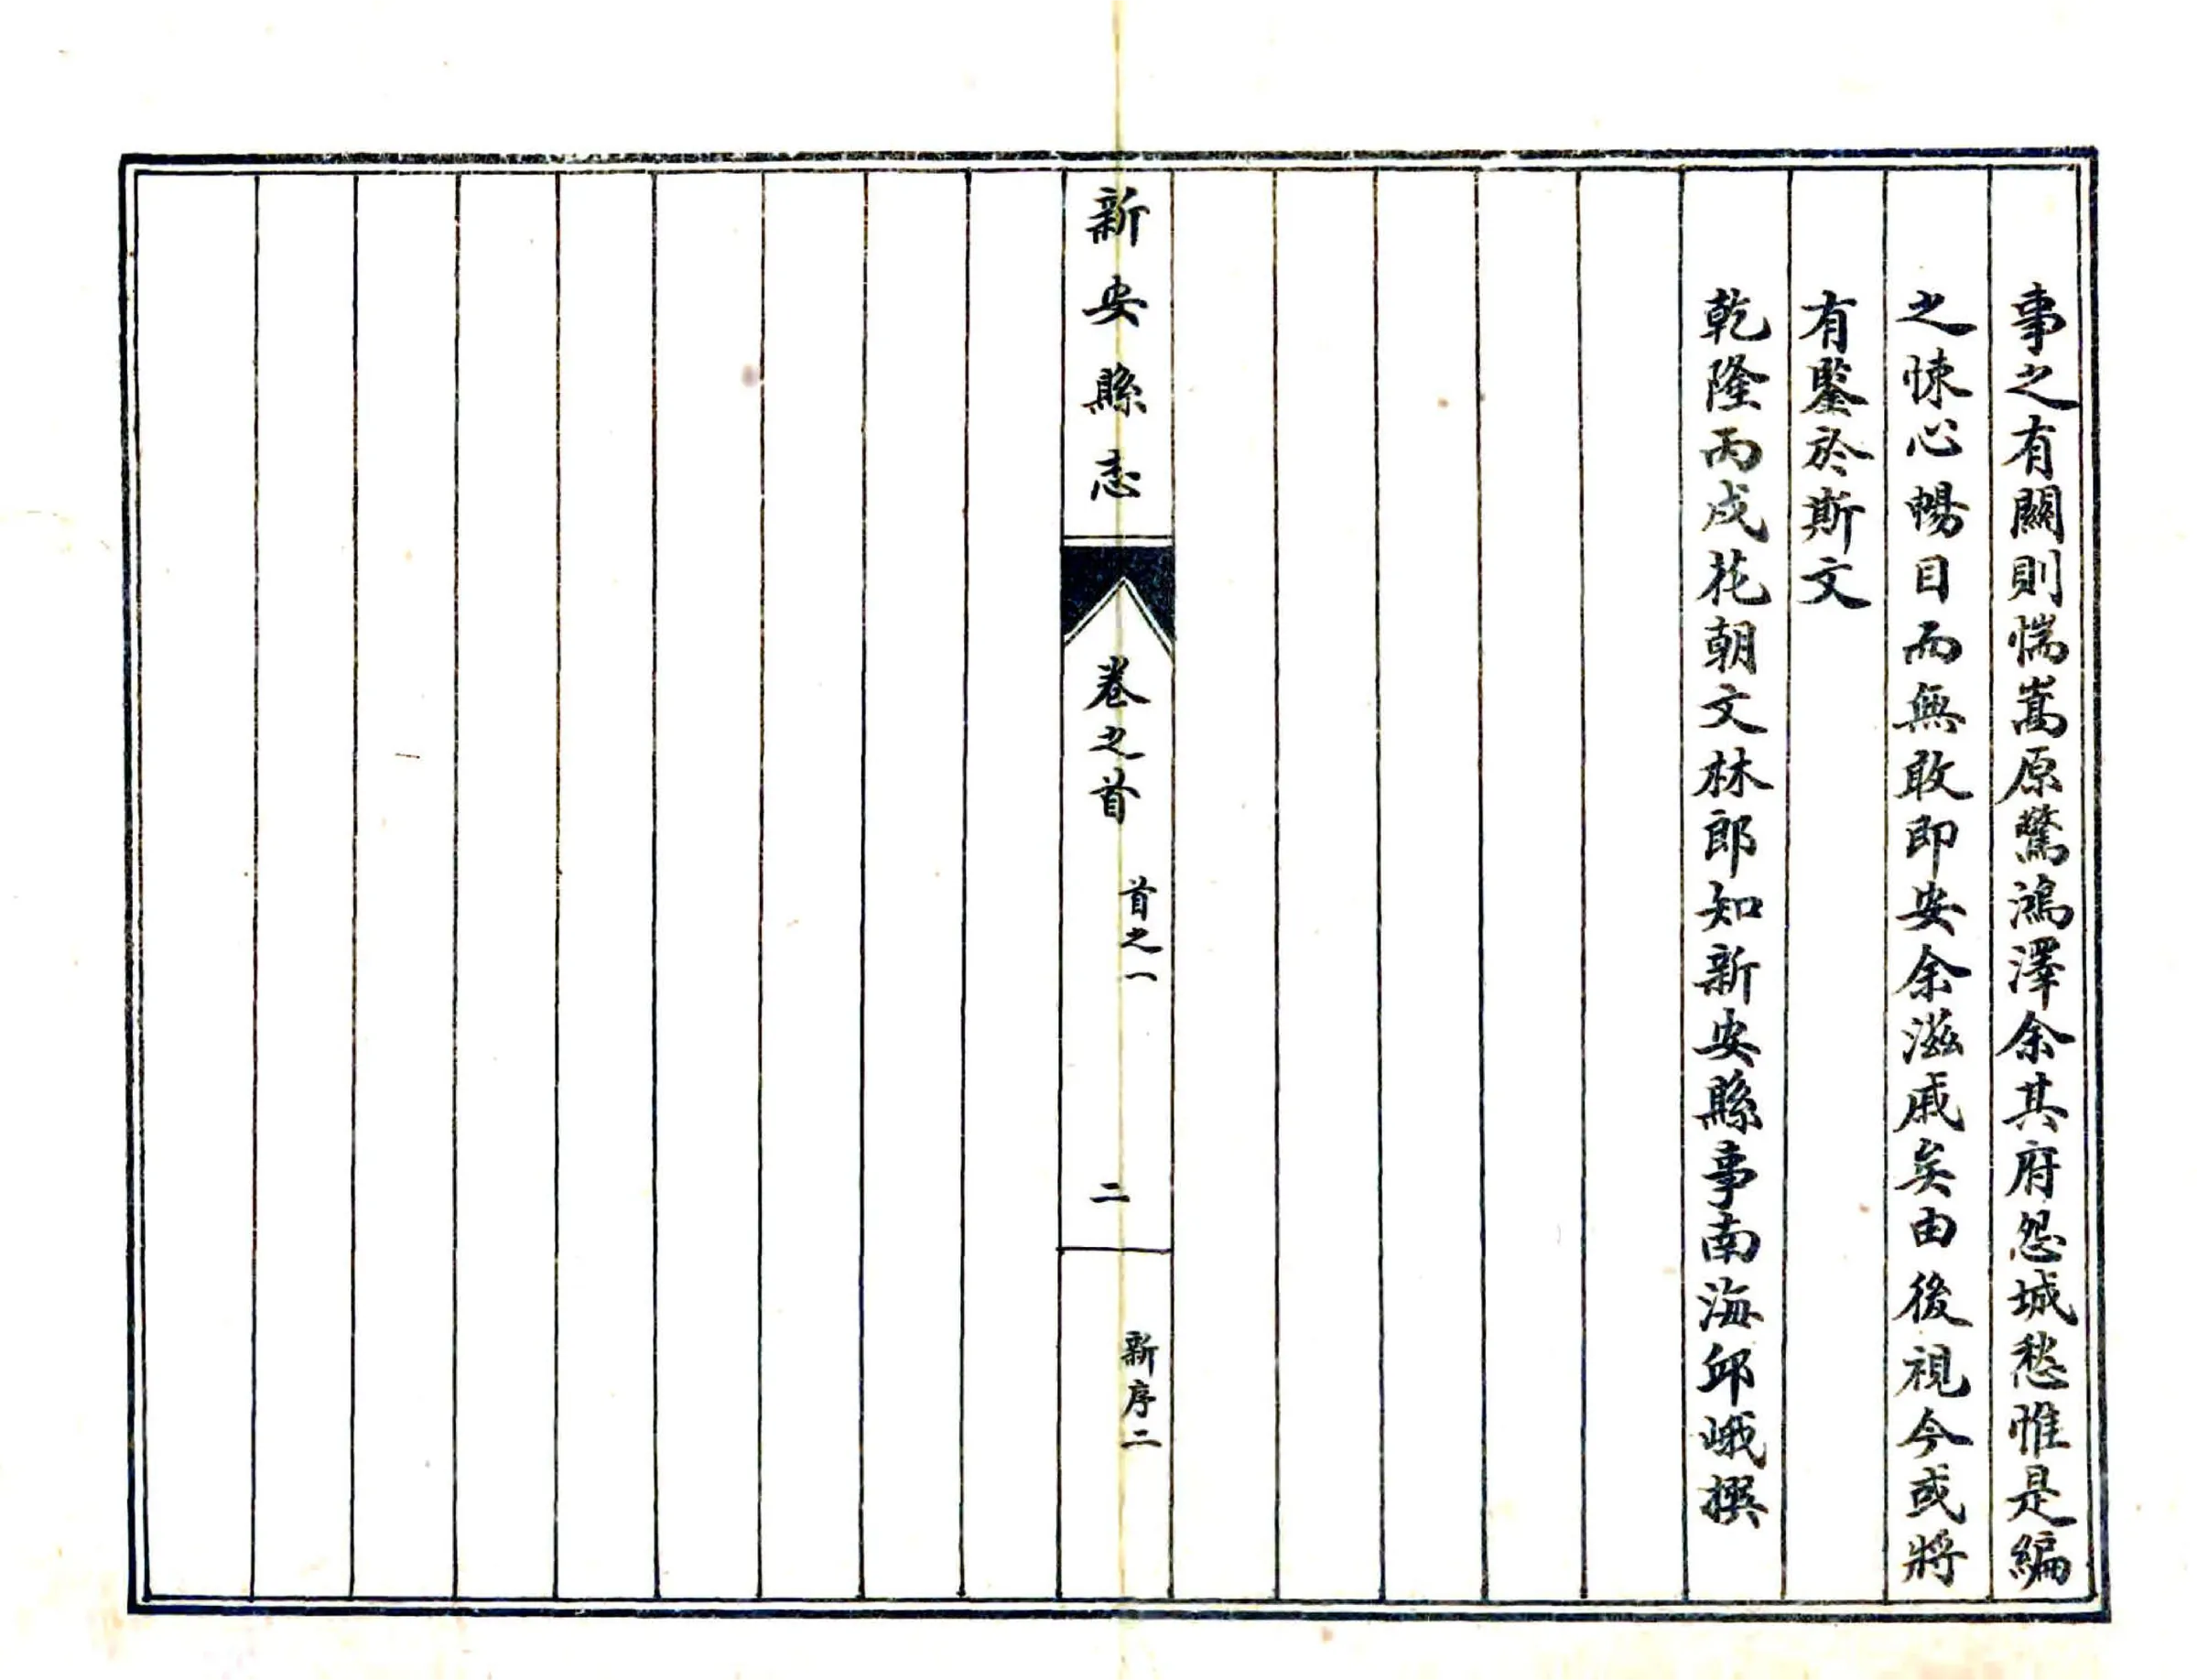 事之有關則惴嵩原驚鴻澤余其府怨城愁惟是編
之悚心暢目而無敢即安余滋戚矣由後視今或將
有鑒於斯文
乾隆丙戌花朝文林郎知新安縣事南海邱峨撰
新安縣志
卷之首
首之一
二
新序二